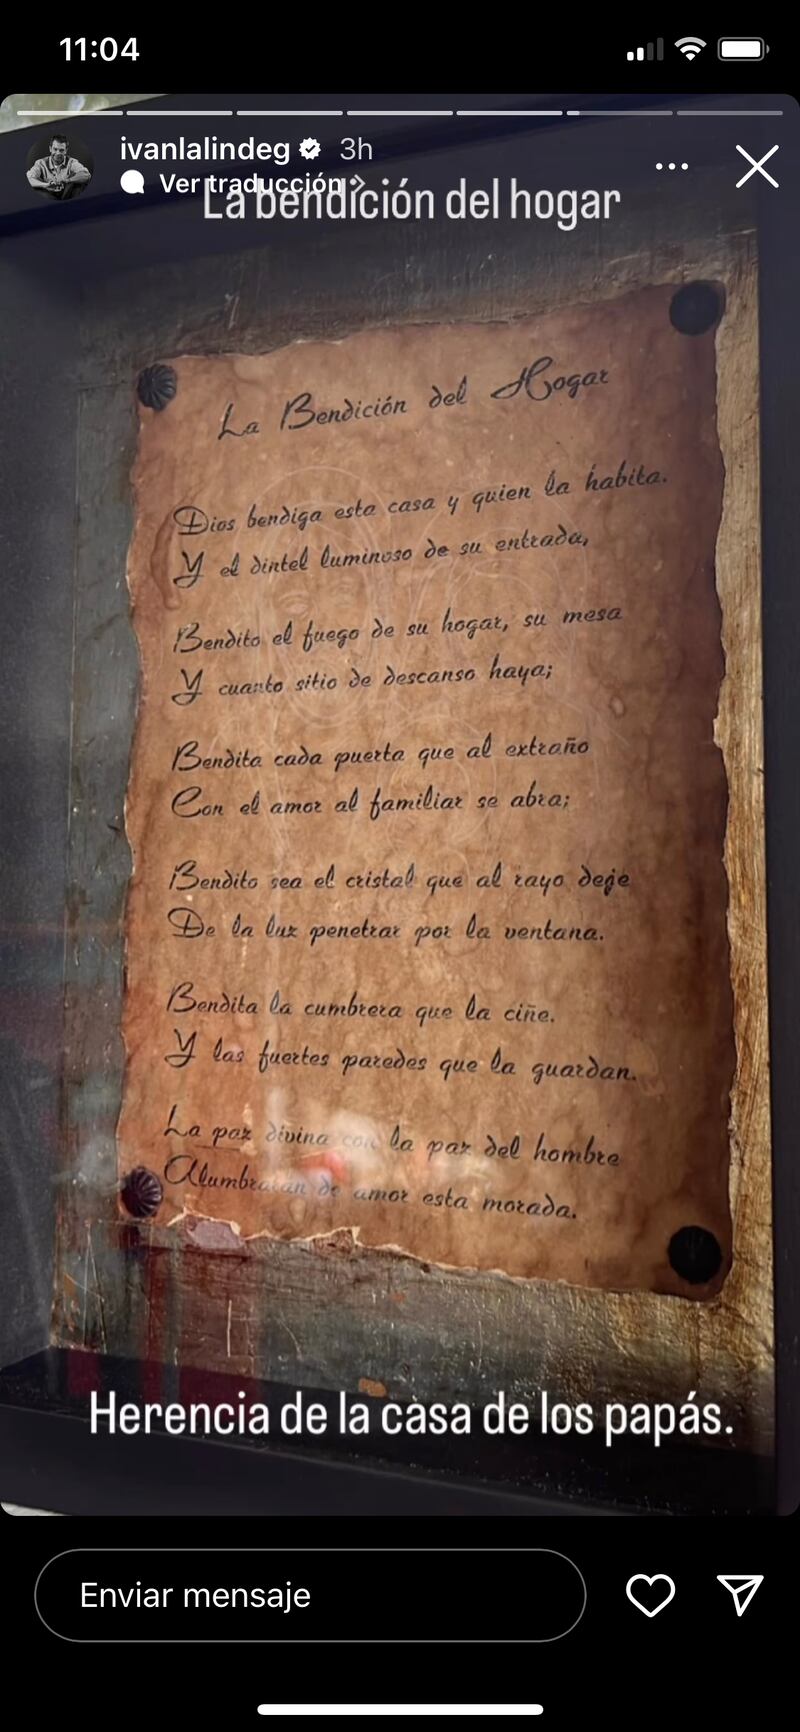 11:04
ivanlalindeg 3h
Ver traducción
La bendición del hogar
La Bendición del Hogar
Dios bendiga esta casa y quien la habita.
Y el dintel luminoso de su entrada,
Bendito el fuego de su hogar, su mesa
Y cuanto sitio de descanso haya;
Bendita cada puerta que al extraño
Con el amor al familiar se abra;
Bendito sea el cristal que al rayo deje
De la luz penetrar por la ventana.
Bendita la cumbrera que la ciñe.
Y las fuertes paredes que la guardan.
La paz divina con la paz del hombre
Alumbrarán de amor esta morada.
Herencia de la casa de los papás.
Enviar mensaje